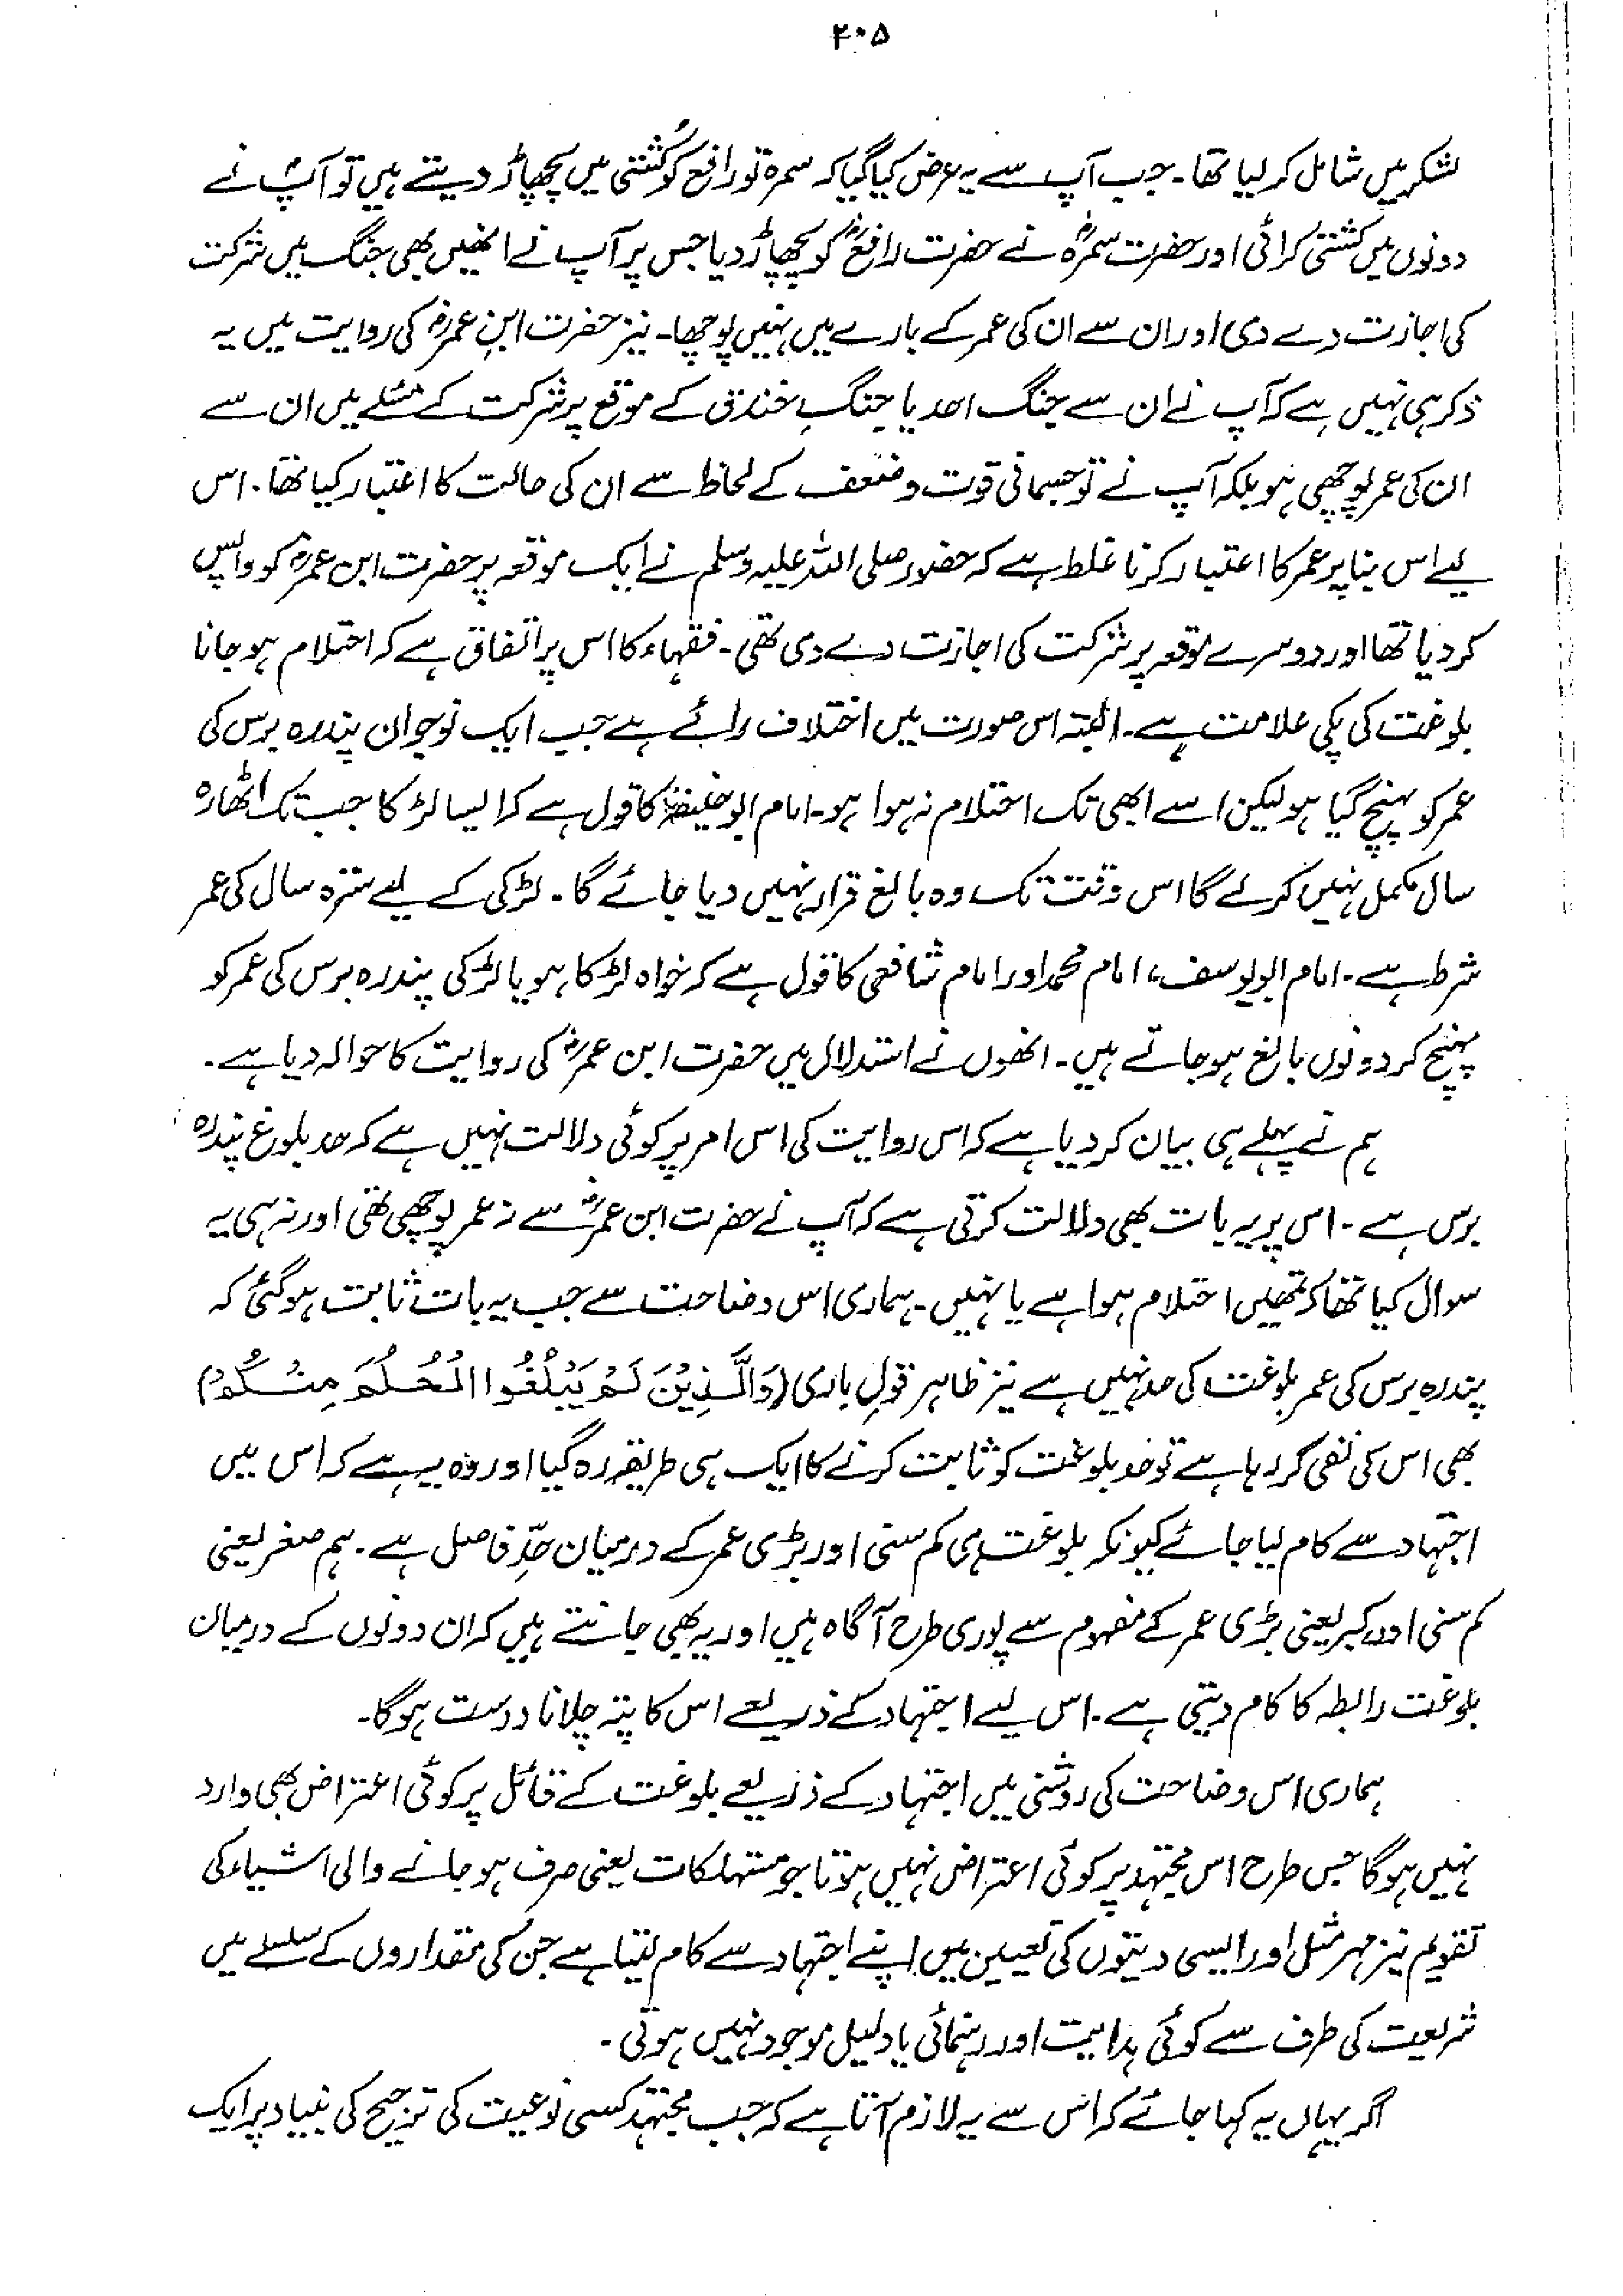 ۲۰۵
لشکر میں شامل کر لیا تھا۔ جب آپ سے یہ عرض کیا گیا کہ سمرہ تو رافع کو کُشتی میں پچھاڑ دیتے ہیں تو آپؐ نے
دونوں میں کشتی کرائی اور حضرت سمرہؓ نے حضرت رافعؓ کو پچھاڑ دیا جس پر آپ نے انھیں بھی جنگ میں شرکت
کی اجازت دے دی اور ان سے ان کی عمر کے بارے میں نہیں پوچھا۔ نیز حضرت ابنِ عمرؓ کی روایت میں یہ
ذکر ہی نہیں ہے کہ آپ نے ان سے جنگ احد یا جنگِ خندق کے موقع پر شرکت کے مسئلے میں ان سے
ان کی عمر پوچھی ہو بلکہ آپ نے تو جسمانی قوت و ضعف کے لحاظ سے ان کی حالت کا اعتبار کیا تھا۔ اس
لیے اس بنا پر عمر کا اعتبار کرنا غلط ہے کہ حضور صلی اللہ علیہ وسلم نے ایک موقعہ پر حضرت ابن عمرؓ کو واپس
کر دیا تھا اور دوسرے موقعہ پر شرکت کی اجازت دے دی تھی۔ فقہاء کا اس پر اتفاق ہے کہ احتلام ہو جانا
بلوغت کی پکی علامت ہے۔ البتہ اس صورت میں اختلاف رائے ہے جب ایک نوجوان پندرہ برس کی
عمر کو پہنچ گیا ہو لیکن اسے ابھی تک احتلام نہ ہوا ہو۔ امام ابوحنیفہؒ کا قول ہے کہ ایسا لڑکا جب تک اٹھارہ
سال مکمل نہیں کر لے گا اس وقت تک وہ بالغ قرار نہیں دیا جائے گا۔ لڑکی کے لیے سترہ سال کی عمر
شرط ہے۔ امام ابو یوسف، امام محمد اور امام شافعی کا قول ہے کہ خواہ لڑکا ہو یا لڑکی پندرہ برس کی عمر کو
پہنچ کر دونوں بالغ ہو جاتے ہیں۔ انھوں نے استدلال میں حضرت ابن عمرؓ کی روایت کا حوالہ دیا ہے۔
ہم نے پہلے ہی بیان کر دیا ہے کہ اس روایت کی اس امر پر کوئی دلالت نہیں ہے کہ حد بلوغ پندرہ
برس ہے۔ اس پر یہ بات بھی دلالت کرتی ہے کہ آپ نے حضرت ابن عمرؓ سے نہ عمر پوچھی تھی اور نہ ہی یہ
سوال کیا تھا کہ تمھیں احتلام ہوا ہے یا نہیں۔ ہماری اس وضاحت سے جب یہ بات ثابت ہو گئی کہ
پندرہ برس کی عمر بلوغت کی حد نہیں ہے نیز ظاہر قولِ باری (وَالَّذِيْنَ لَمْ يَبْلُغُوا الْحُلُمَ مِنْكُمْ)
بھی اس کی نفی کر رہا ہے تو حد بلوغت کو ثابت کرنے کا ایک ہی طریقہ رہ گیا اور وہ یہ ہے کہ اس میں
اجتہاد سے کام لیا جائے کیونکہ بلوغت ہی کم سنی اور بڑی عمر کے درمیان حدِّ فاصل ہے۔ ہم صغر یعنی
کم سنی اور کبر یعنی بڑی عمر کے مفہوم سے پوری طرح آگاہ ہیں اور یہ بھی جانتے ہیں کہ ان دونوں کے درمیان
بلوغت رابطہ کا کام دیتی ہے۔ اس لیے اجتہاد کے ذریعے اس کا پتہ چلانا درست ہوگا۔
ہماری اس وضاحت کی روشنی میں اجتہاد کے ذریعے بلوغت کے قائل پر کوئی اعتراض بھی وارد
نہیں ہوگا جس طرح اس مجتہد پر کوئی اعتراض نہیں ہوتا جو مستہلکات یعنی صرف ہو جانے والی اشیاء کی
تقویم نیز مہر مثل اور ایسی دیتوں کی تعیین میں اپنے اجتہاد سے کام لیتا ہے جن کی مقداروں کے سلسلے میں
شریعت کی طرف سے کوئی ہدایت اور رہنمائی یا دلیل موجود نہیں ہوتی۔
اگر یہاں یہ کہا جائے کہ اس سے یہ لازم آتا ہے کہ جب مجتہد کسی نوعیت کی ترجیح کی بنیاد پر ایک